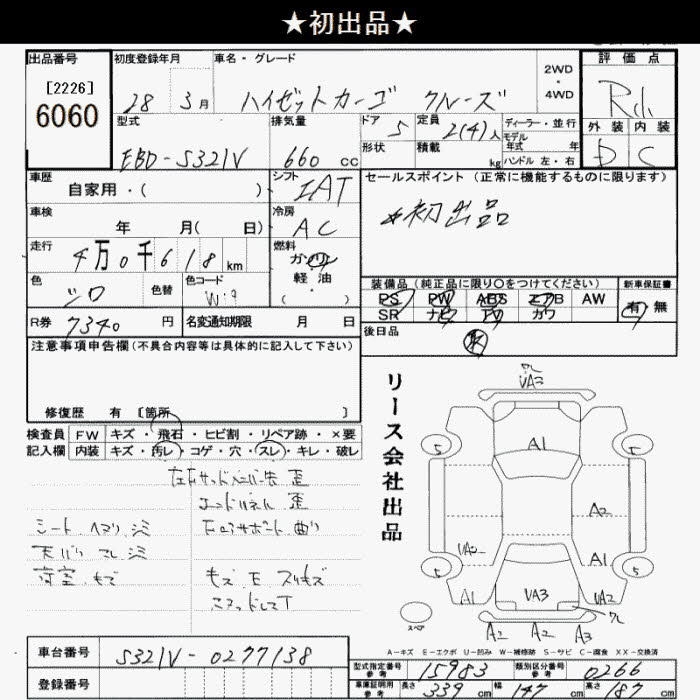 ★初出品★
出品番号 初度登録年月 車名・グレード 2WD・4WD 評価点
[2226]
6060
28 3月 ハイゼットカーゴ クルーズ
型式 排気量 ドア 定員 ディーラー・並行 外装 内装
EBD-S321V 660cc 5 2(4)人 モデル年式 年
形状 積載 kg ハンドル 左・右 D C
車歴 自家用・( ) シフト IAT セールスポイント (正常に機能するものに限ります)
車検 年 月( 日) 冷房 AC *初出品
走行 4万0千618km 燃料 ガソリン 軽油 ( ・ )
色 シロ 色替 色コード 装備品 (純正品に限り○をつけてください) 新車保証書
PS PW ABS エアB AW 有 無
R券 7340円 名変通知期限 月 日 SR ナビ TV カワ
後日品
注意事項申告欄 (不具合内容等は具体的に記入して下さい)
修復歴 有 〔箇所 〕
検査員記入欄 FW キズ・飛石・ヒビ割・リペア跡・×要
内装 キズ・汚レ・コゲ・穴・スレ・キレ・破レ
リース会社出品
シート
荷室 キズ
A1
A2
A1
A1 VA3 VA2
A2 A2 A3
スペア
A-キズ E-エクボ U-凹み W-補修跡 S-サビ C-腐食 XX-交換済
車台番号 S321V-0277138
登録番号
型式指定番号 参考 15983 類別区分番号 参考 0266
車庫証明用 参考 長さ 339cm 幅 147cm 高さ 187cm